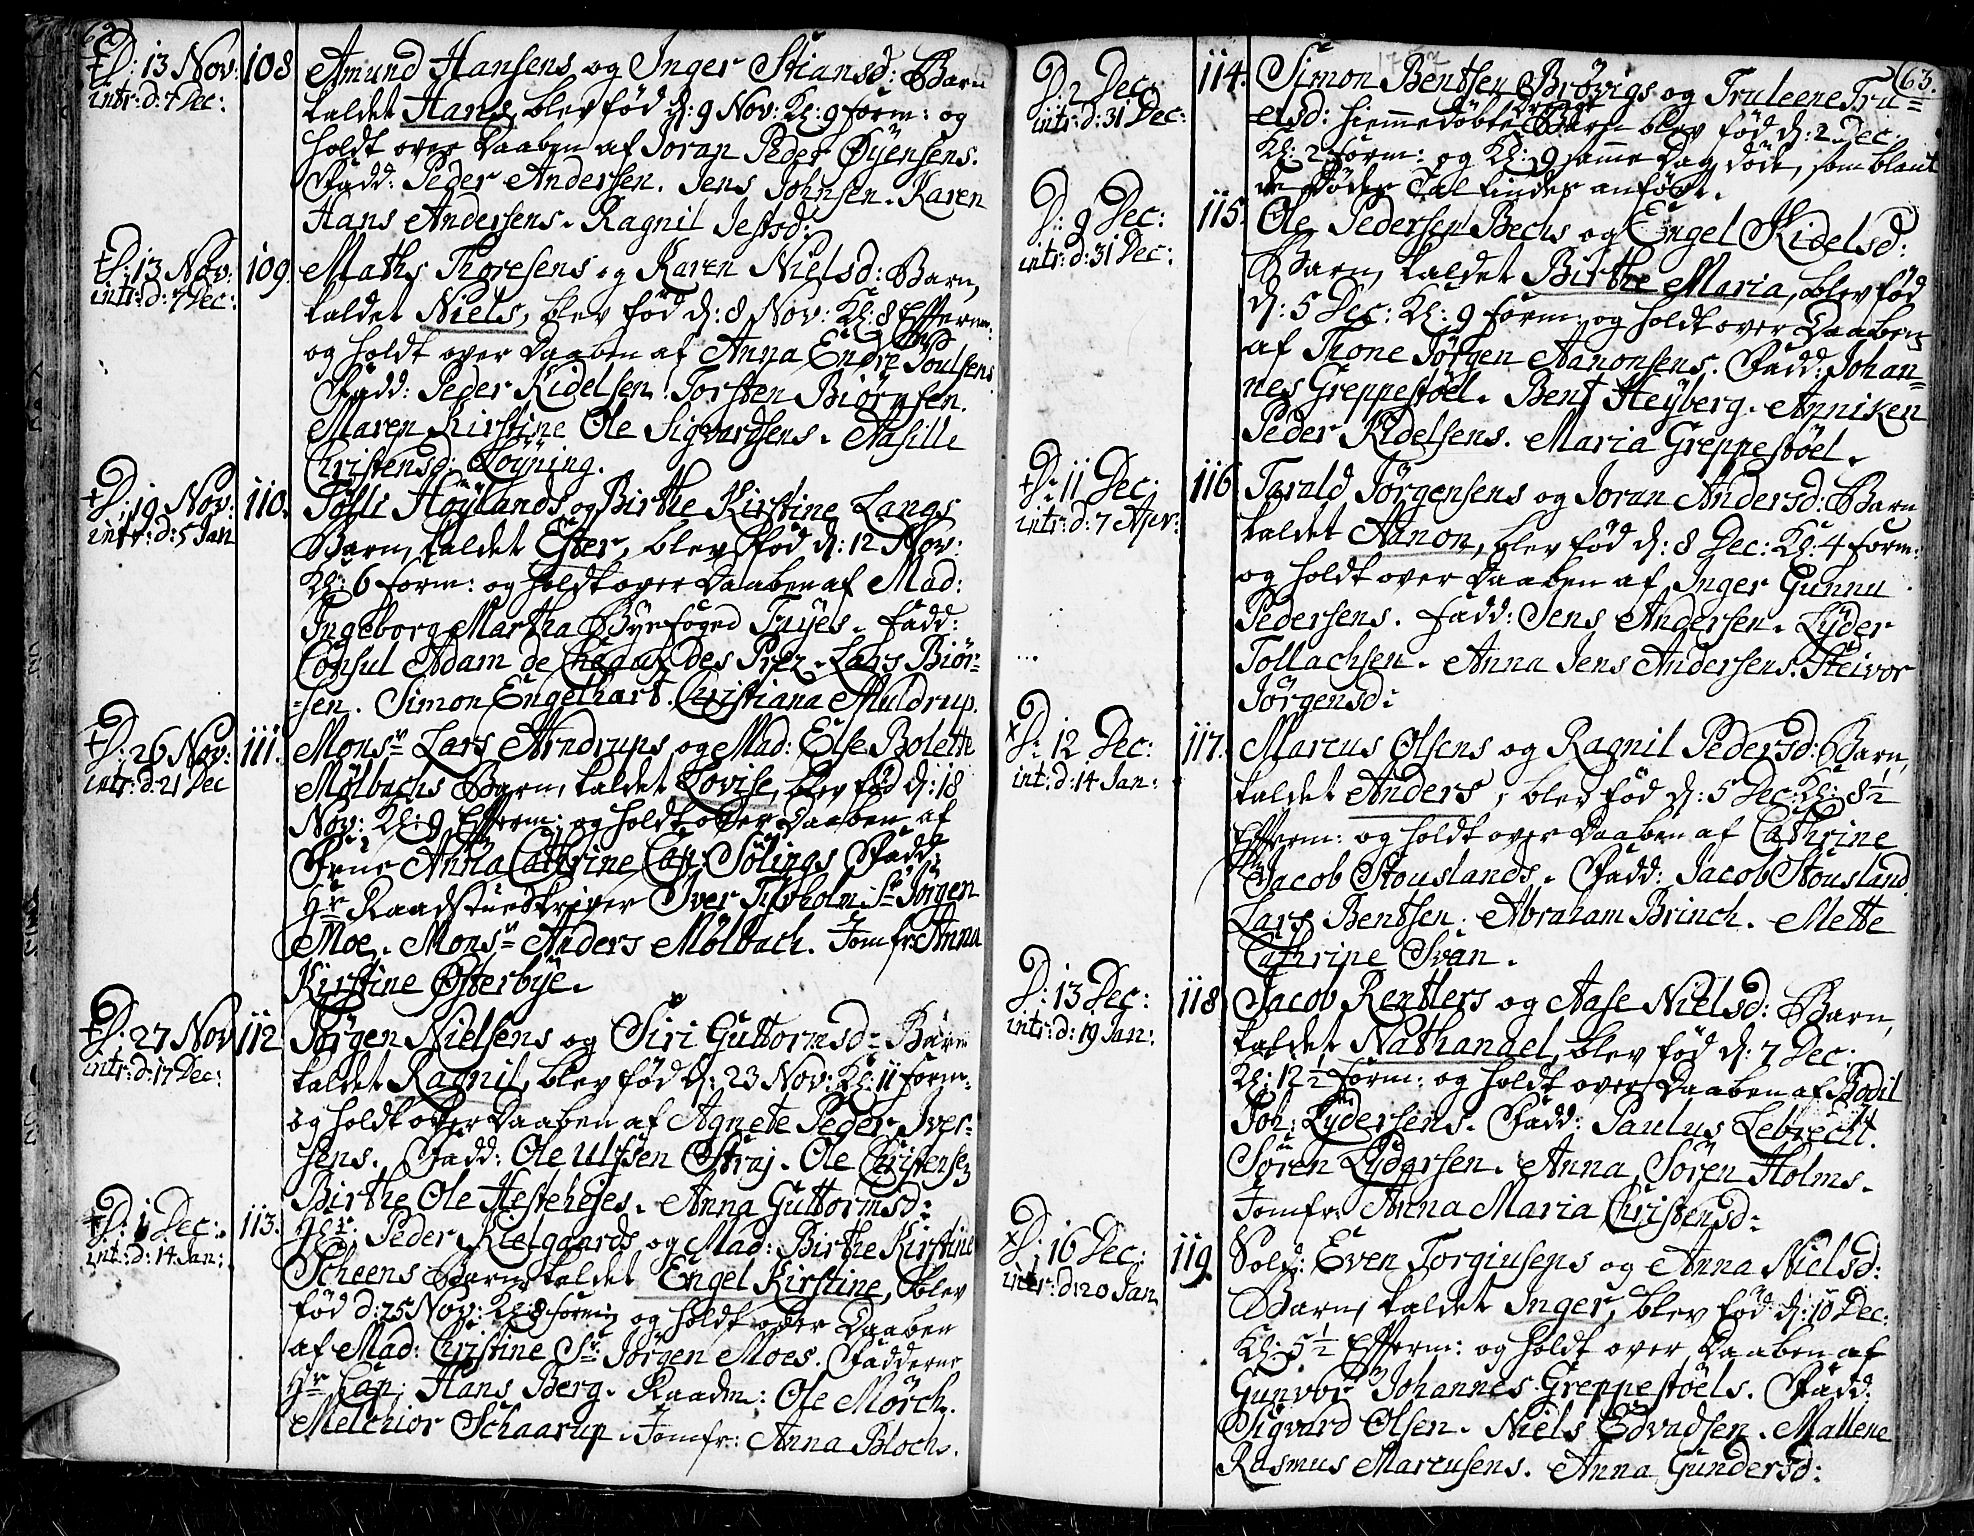 62
D: 13 Nov: 108. Amund Hansens og Inger Stiansd: Barn
intr: d: 7 Dec: kaldet Hans, blev fød d: 9 Nov: Kl: 9 form: og
holdt over Daaben af Joran Peder Øyensens.
Fadd: Peder Andersen. Jens Johnsen. Karen
Hans Andersens. Ragnil Jestsd:
D: 13 Nov: 109. Maths Thoresens og Karen Nielsd: Barn,
intr: d: 7 Dec: kaldet Niels, blev fød d: 8 Nov: Kl: 8 Efferm:
og holdt over Daaben af Anna Endre Poulsens
Fadd: Peder Kidelsen. Torsten Biörnsen.
Maren Kirstine Ole Sigvardsens. Aasille
Christensd:
D: 19 Nov: 110. Tölli Höylands og Birthe Kirstine Langs
intr: d: 5 Jan Barn, kaldet Ester, blev fød d: 12 Nov:
Kl: 6 form: og holdt over Daaben af Mad:
Ingeborg Martha Byefoged Tuyes. Fadd:
Consul Adam de Prez. Lars Biör-
-sen. Simon Engelhart. Christiana Muldrup.
D: 26 Nov: 111. Monsr Lars Arndrups og Mad: Else Bolette
intr: d: 21 Dec Mölbachs Barn, kaldet Lovise, blev fød d: 18
Nov: Kl: 9 Efferm: og holdt over Daaben af
Frue Anna Cathrine Cap: Sölings Fadd:
Hr Raadstueskriver Iver Sr Jörgen
Moe. Monsr Anders Mölbach. Jomfr: Anna
Kirstine Østerbye.
D: 27 Nov 112 Jörgen Nielsens og Siri Guttormsd: Barn
intr: d: 17 Dec: kaldet Ragnil, blev fød d: 23 Nov: Kl: 11 form:
og holdt over Daaben af Agnete Peder Iver-
sens. Fadd: Ole Ulfsen Straj. Ole Christensen
Birthe Ole Hesteheses. Anna Guttormsd:
D: 1 Dec: 113. Hr: Peder Kielgaards og Mad: Birthe Kirstine
int: d: 14 Jan: Scheens Barn, kaldet Engel Kirstine, blev
fød d: 25 Nov: Kl: 8 form: og holdt over Daaben
af Mad: Christine Sr Jörgen Moes. Fadderne
Hr Cap: Hans Berg. Raadm: Ole Mörch.
Melchior Schaarup. Jomfr: Anna Blochs.
63.
D: 2 Dec: 114. Simon Bentsen Brövigs og Truleene Tru-
intr: d: 31 Dec: elsd: hiemmedöbte Barn blev fød d: 2 Dec:
Kl: 2 form: og Kl: 9 samme Dag döde, som blant
de Dödes Tal findes anfört.
D: 9 Dec: 115. Ole Pedersen Bechs og Engel Kidelsd:
intr: d: 31 Dec: Barn, kaldet Birthe Maria, blev fød
d: 5 Dec: Kl: 9 form: og holdt over Daaben
af Thone Jörgen Aanonsens. Fadd: Johan-
nes Greppestöel. Bent Heyberg. Anniken
Peder Kidelsens. Maria Greppestöel.
D: 11 Dec: 116 Tarald Jörgensens og Joran Andersd: Barn
intr: d: 7 Apr: kaldet Aanon, blev fød d: 8 Dec: Kl: 4 form:
og holdt over Daaben af Inger Gunnu
Pedersens. Fadd: Jens Andersen. Lyder
Tollachsen. Anna Jens Andersens. Steivor
Jörgensd:
D: 12 Dec: 117. Marcus Olsens og Ragnil Pedersd: Barn,
int: d: 14 Jan: kaldet Anders, blev fød d: 5 Dec: Kl: 8½
Efferm: og holdt over Daaben af Cathrine
Jacob Stouslands. Fadd: Jacob Stousland.
Lars Bentsen. Abraham Brinch. Mette
Cathrine Svan.
D: 13 Dec: 118 Jacob Rentlers og Aase Nielsd: Barn,
intr: d: 19 Jan: kaldet Nathanael, blev fød d: 7 Dec:
Kl: 12½ form: og holdt over Daaben af Bodil
Joh: Lydersens. Fadd: Paulus Lebrecht.
Sören Lydersen. Anna Sören Holms.
Jomfr: Anna Maria Christensd:
D: 16 Dec: 119. Sold: Even Torgiusens og Anna Nielsd:
intr: d: 20 Jan Barn, kaldet Inger, blev fød d: 10 Dec:
Kl: 5½ Efferm: og holdt over Daaben af
Gunvor Johannes Greppestöels. Fadd:
Sigvard Olsen. Niels Edvadsen. Mallene
Rasmus Marcusens. Anna Gundersd: